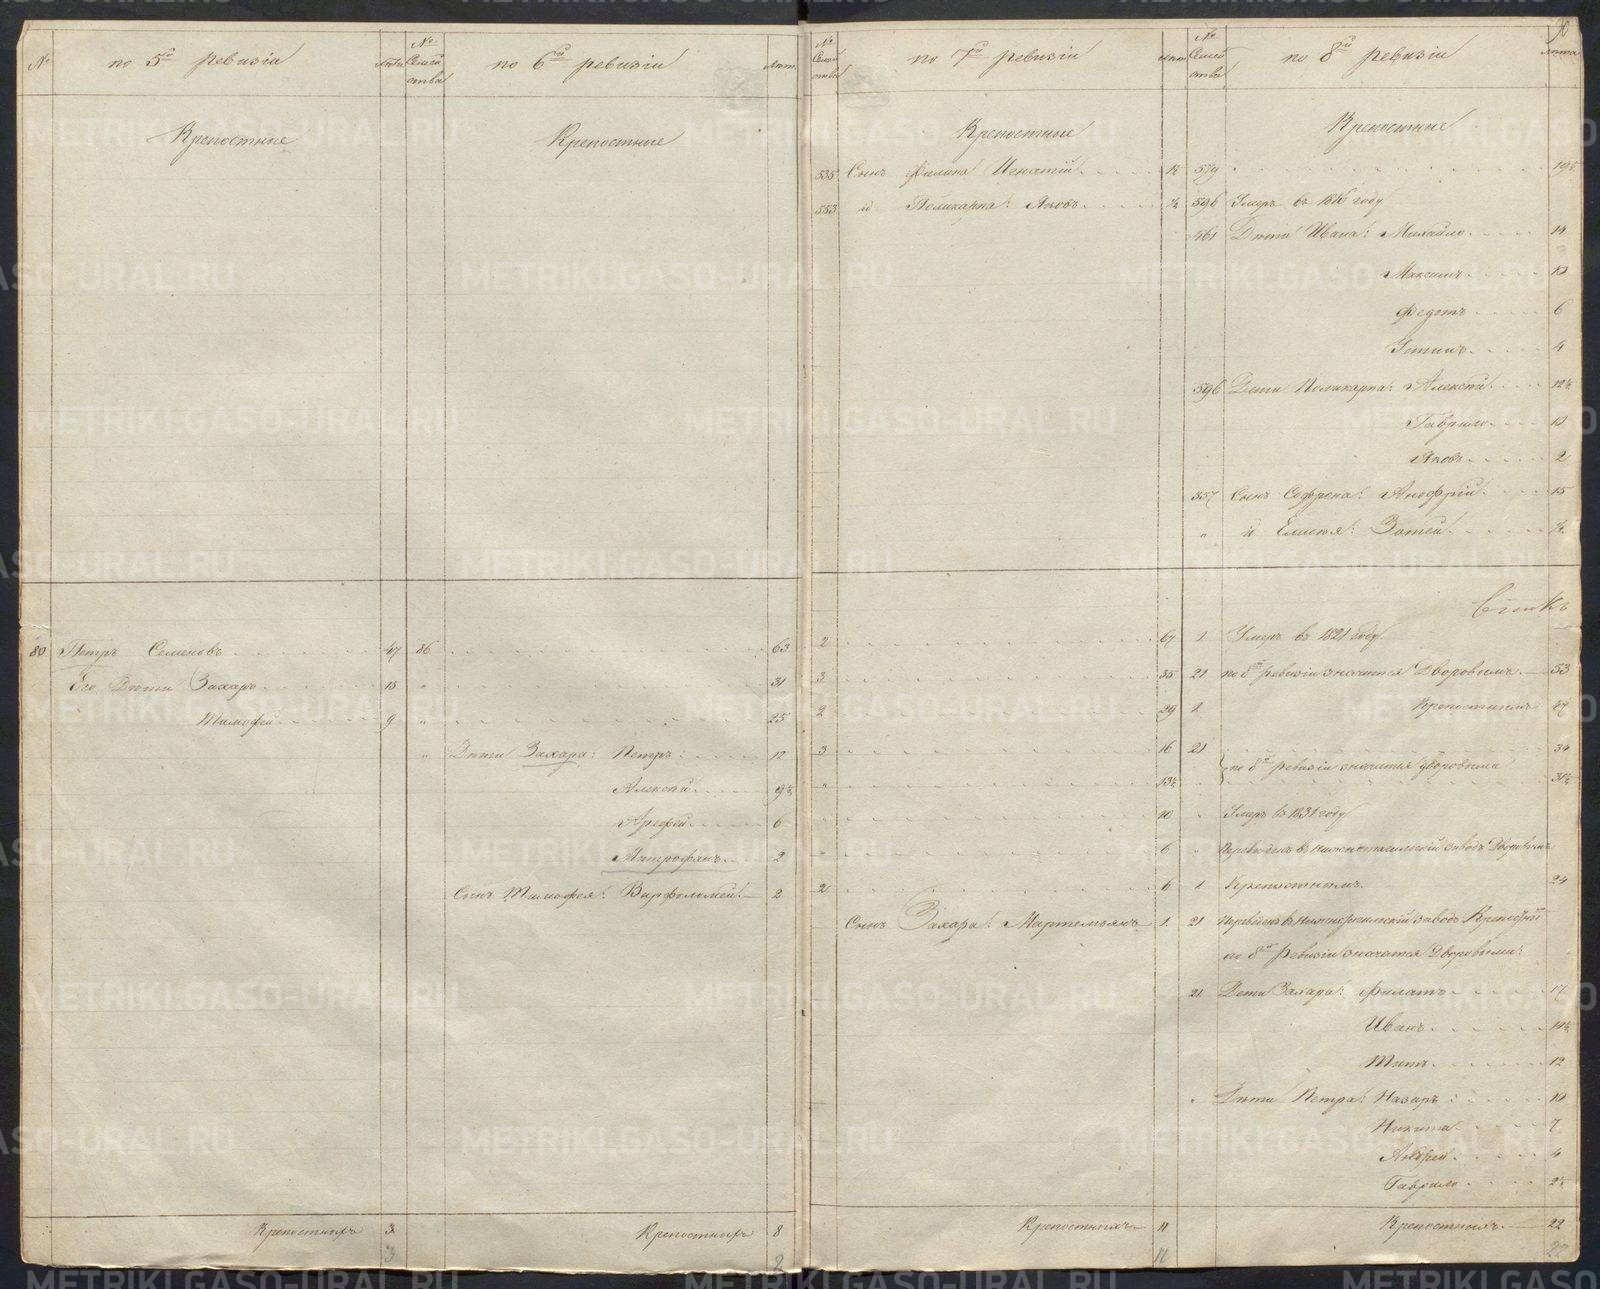 №
по 5й ревизіи
лѣта
№ Семей ства
по 6й ревизіи
лѣт.
Крепостные
Крепостные
80 Петръ Семеновъ 47 86 63
Его Дѣти Захаръ 15 " 31
Тимофей 9 " 25
" Дѣти Захара: Петръ: 12
Алексѣй 9½
Арефей 6
Митрофанъ 2
Сынъ Тимофея: Варфоломей 2
Крепостныхъ 3
Крепостныхъ 8
3
8
№ Семей ства
по 7й ревизіи
лѣт.
№ Семей ства
по 8й ревизіи
лѣта
Крепостные
Крепостные
535 Сынъ Филипа Игнатій ½ 579 19½
553 и Поликарпа: Яковъ ½ 596 Умеръ въ 1816 году
461 Дѣти Ивана: Михайло 14
Максимъ 10
Федотъ 6
Устинъ 4
596 Дети Поликарпа: Алексѣй 12½
Гаврило 10
Яковъ 2
557 Сынъ Софрона: Анофрій 15
" и Елисея: Зотей ½
2 67 1 Умеръ въ 1821 году
3 35 21 по 8й ревизіи значится Дворовымъ 53
2 29 1 Крепостнымъ 47
3 16 21 34
по 8й ревизіи значатся дворовыми
" 13½ " 31½
" 10 " Умеръ въ 1831 году
" 6 " Переведенъ въ Нижнетагильскій заводъ Дворовымъ
2 6 1 Крепостнымъ 24
Сынъ Захара: Мартемьянъ 1 21 Переведенъ въ Нижнетагильскій заводъ Крепостной
по 8й ревизіи значатся Дворовыми:
21 Дети Захара: Филатъ 17
Иванъ 14½
Титъ 12
" Дѣти Петра: Назаръ 10
Никита 7
Андрей 4
Гаврило 2½
Крепостныхъ 11
Крепостныхъ 22
11
22
METRIKI.GASO-URAL.RU